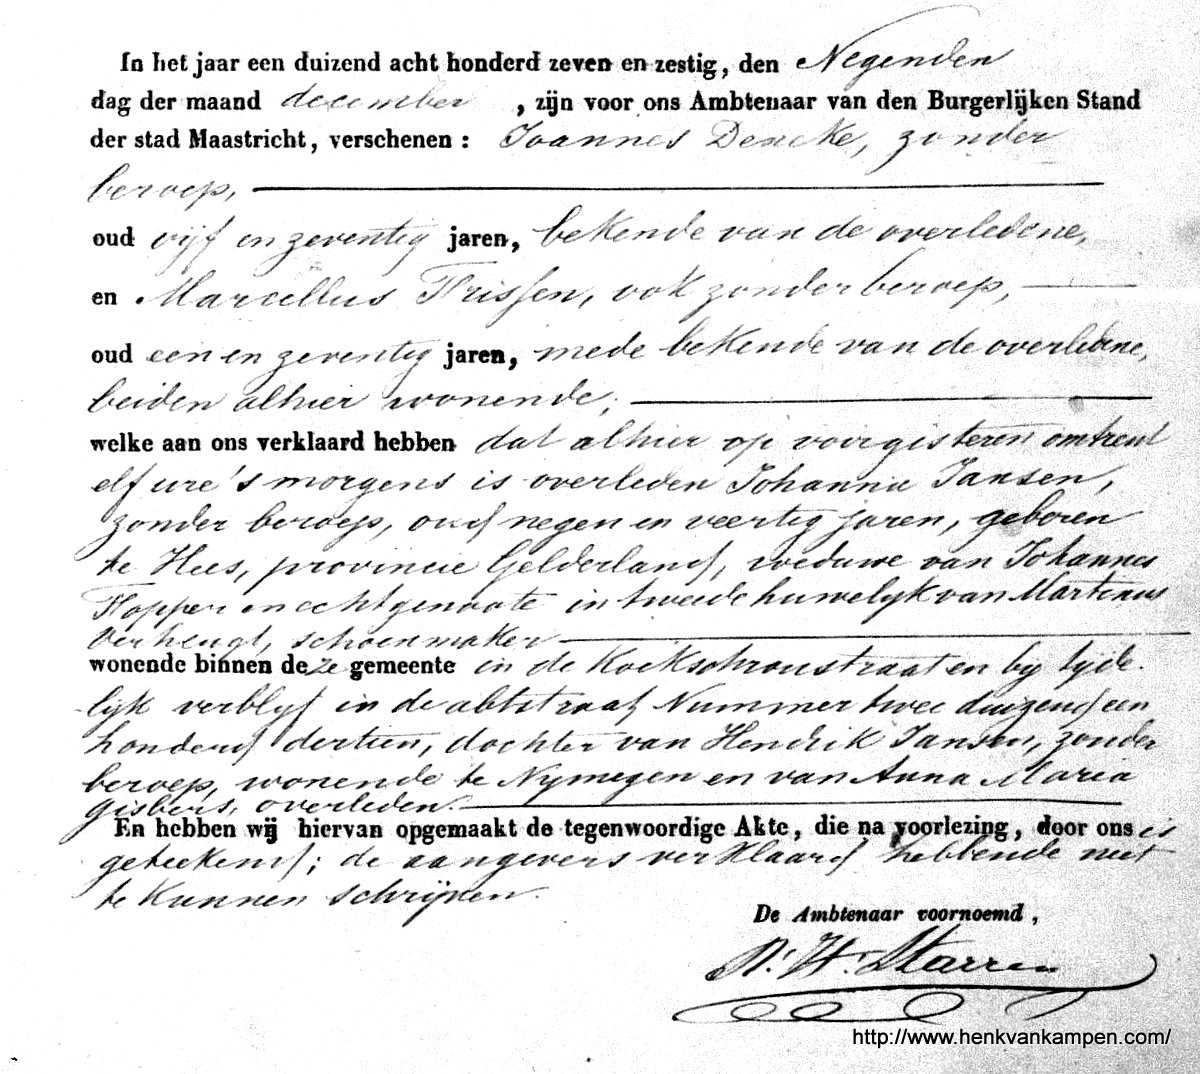 In het jaar een duizend acht honderd zeven en zestig, den Negenden
dag der maand december , zijn voor ons Ambtenaar van den Burgerlijken Stand
der stad Maastricht, verschenen : Joannes Dencke, zonder
beroep,
oud vijf en zeventig jaren, bekende van de overledene,
en Marcellus Frissen, ook zonder beroep,
oud een en zeventig jaren, mede bekende van de overledene,
beiden alhier wonende;
welke aan ons verklaard hebben dat alhier op voorgisteren omtrent
elf ure 's morgens is overleden Johanna Jansen,
zonder beroep, oud negen en veertig jaren, geboren
te Hees, provincie Gelderland, weduwe van Johannes
Flopper en echtgenoote in tweede huwelijk van Martinus
Verheugt, schoenmaker
wonende binnen deze gemeente in de Kockschroustraat en bij tijde-
lijk verblijf in de abtstraat, Nummer twee duizend een
honderd dertien, dochter van Hendrik Jansen, zonder
beroep, wonende te Nymegen en van Anna Maria
gisbers, overleden.
En hebben wij hiervan opgemaakt de tegenwoordige Akte, die na voorlezing, door ons is
geteekend; de aangevers verklaard hebbende niet
te kunnen schrijven.
De Ambtenaar voornoemd ,
W. H. Starren
http://www.henkvankampen.com/